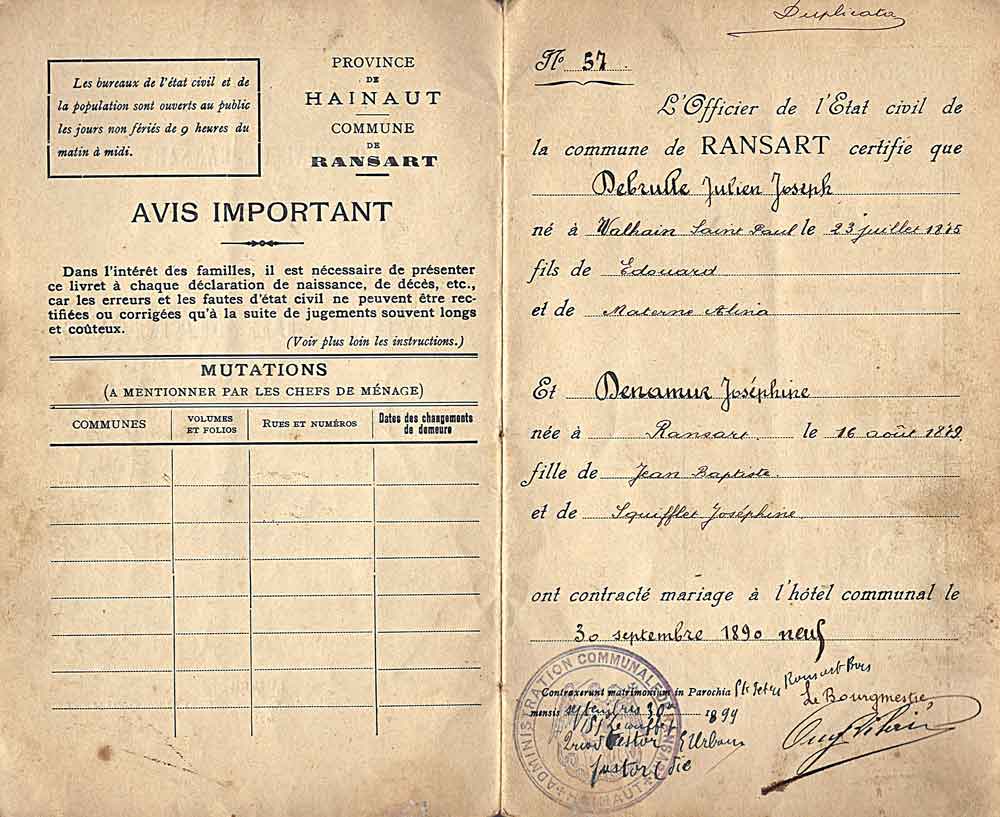 Les bureaux de l'état civil et de
la population sont ouverts au public
les jours non fériés de 9 heures du
matin à midi.
PROVINCE
DE
HAINAUT
COMMUNE
DE
RANSART
AVIS IMPORTANT
Dans l'intérêt des familles, il est nécessaire de présenter
ce livret à chaque déclaration de naissance, de décès, etc.,
car les erreurs et les fautes d'état civil ne peuvent être rec-
tifiées ou corrigées qu'à la suite de jugements souvent longs
et coûteux.
(Voir plus loin les instructions.)
MUTATIONS
(A MENTIONNER PAR LES CHEFS DE MÉNAGE)
COMMUNES
VOLUMES
ET FOLIOS
RUES ET NUMÉROS
Dates des changements
de demeure
Duplicata
No 57
L'Officier de l'Etat civil de
la commune de RANSART certifie que
Debrulle Julien Joseph
né à Walhain Saint Paul le 23 juillet 1875
fils de Edouard
et de Materne Alina
Et Denamur Joséphine
née à Ransart le 16 août 1879
fille de Jean Baptiste
et de Squifflet Joséphine
ont contracté mariage à l'hôtel communal le
30 septembre 1890 neuf
Contraxerunt matrimonium in Parochia Ransart Bois
mensis septembris 30 1899
Le Bourgmestre
ADMINISTRATION COMMUNALE RANSART
HAINAUT